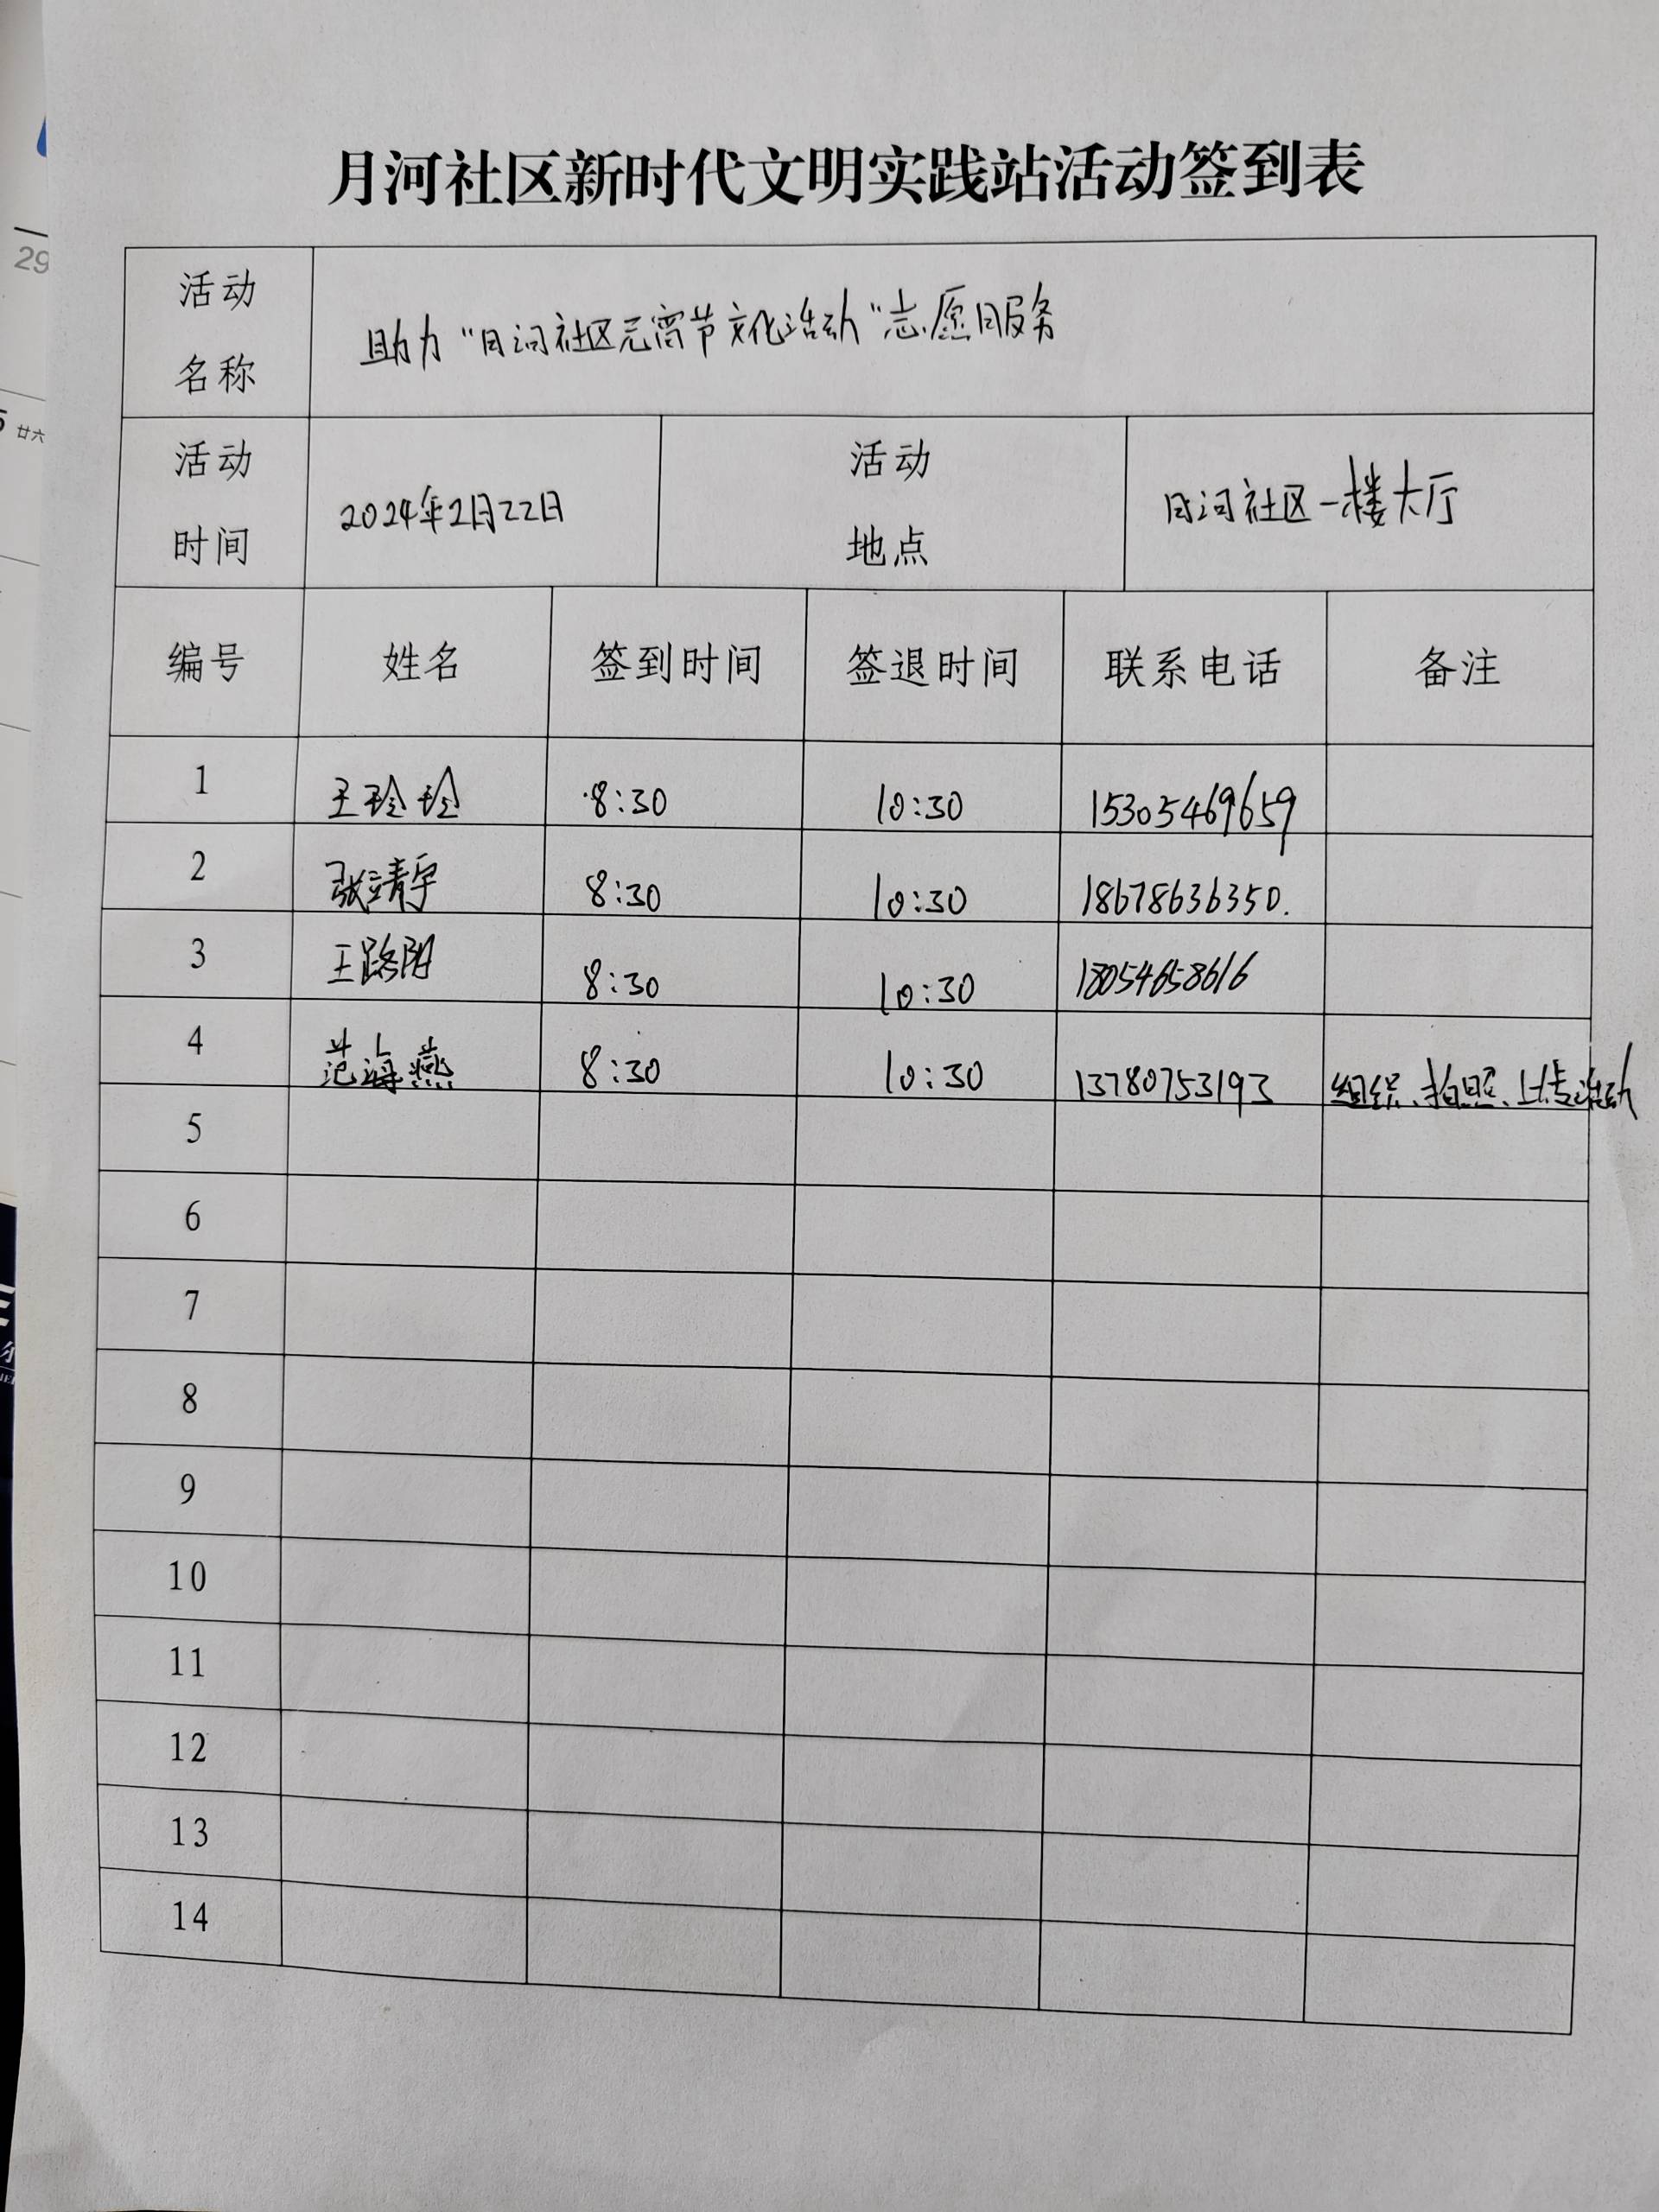 月河社区新时代文明实践站活动签到表
活动名称 助力“月河社区元宵节文化活动”志愿服务
活动时间 2024年2月22日 活动地点 月河社区一楼大厅
编号 姓名 签到时间 签退时间 联系电话 备注
1 王玲玲 8:30 10:30 15305469659
2 张靖宇 8:30 10:30 18678636350.
3 王路阳 8:30 10:30 18054658616
4 范海燕 8:30 10:30 13780753193 组织、拍照、上传活动
5
6
7
8
9
10
11
12
13
14
29
廿六